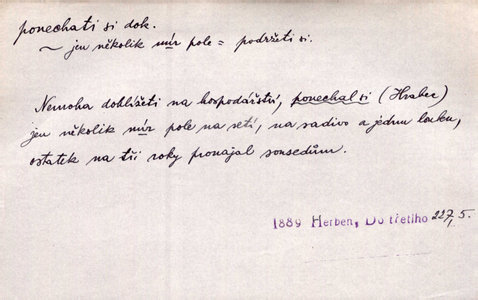 ponechati si dok.
~ jen několik měr pole = podržeti si.
Nemoha dohlížeti na hospodářství, ponechal si (Hrabec)
jen několik měr pole na setí, na sadivo a jednu louku,
ostatek na tři roky pronajal sousedům.
1889 Herben, Do třetího 227, 5.